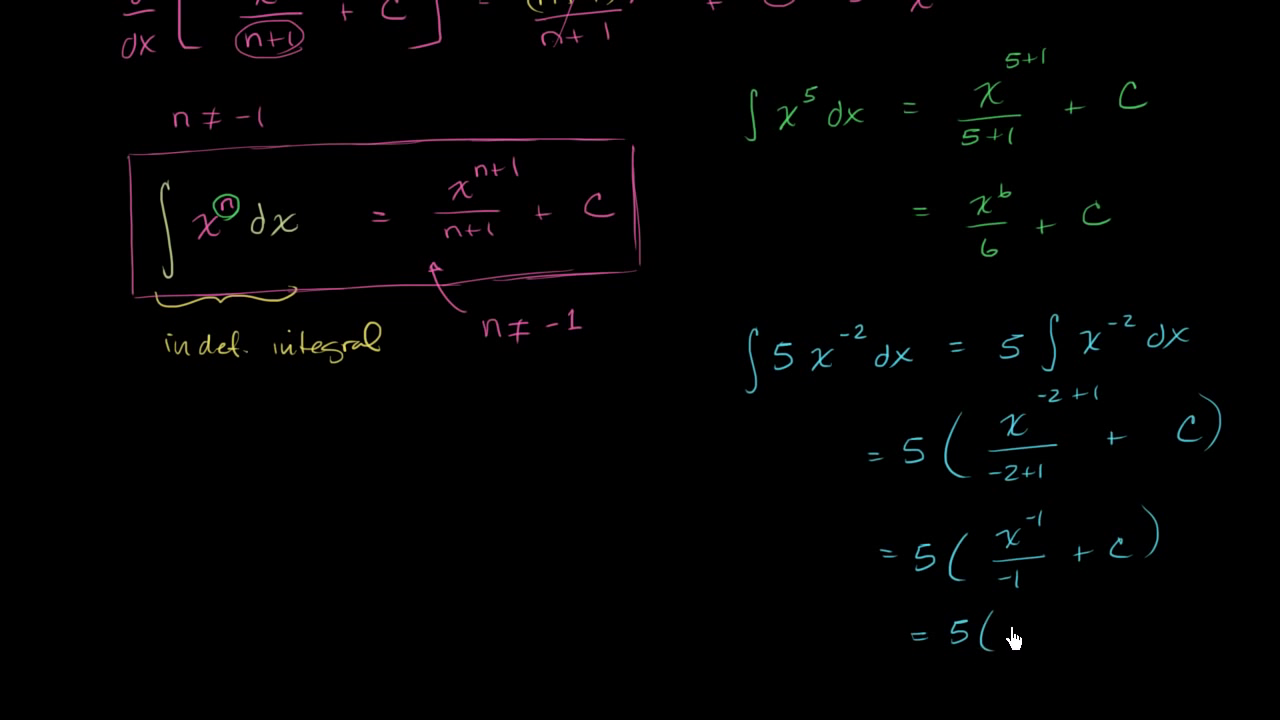 d/dx [ x / (n+1) + C ] = (n+1) / n+1 + x
n ≠ -1
∫ xⁿ dx = xⁿ⁺¹ / n+1 + C
n ≠ -1
indef. integral
∫ x⁵ dx = x⁵⁺¹ / 5+1 + C
= x⁶ / 6 + C
∫ 5 x⁻² dx = 5 ∫ x⁻² dx
= 5 ( x⁻²⁺¹ / -2+1 + C )
= 5 ( x⁻¹ / -1 + C )
= 5 (